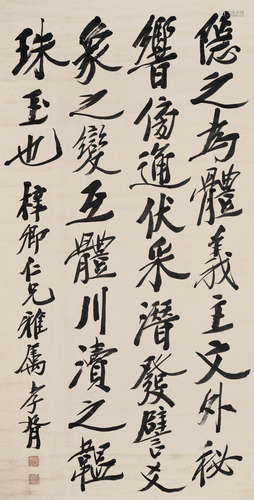 隱之為體義主文外秘
響傍通伏采潛發譬爻
象之變互體川瀆之韞
珠玉也 卿仁兄雅屬 孝胥